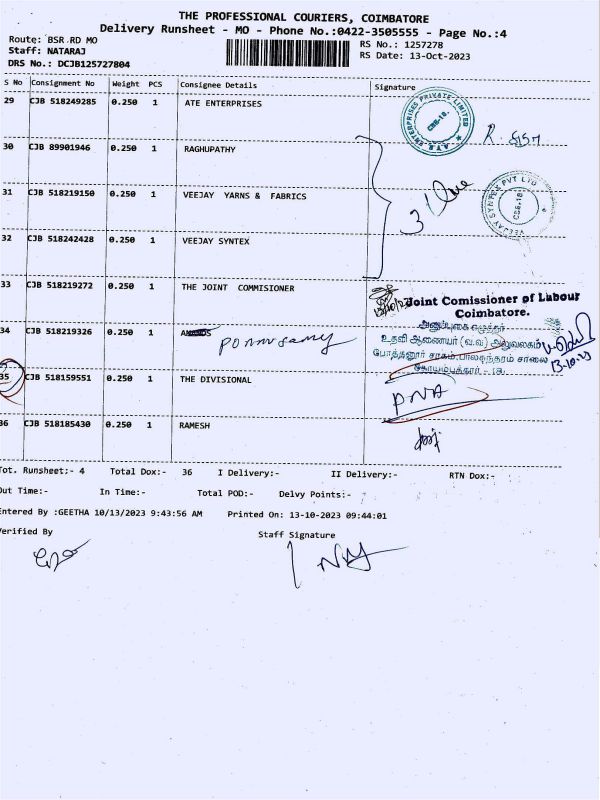 THE PROFESSIONAL COURIERS, COIMBATORE
Delivery Runsheet - MO - Phone No.:0422-3505555 - Page No.:4
Route: BSR RD MO
RS No.: 1257278
Staff: NATARAJ
RS Date: 13-Oct-2023
DRS No.: DCJB125727804
S No Consignment No Weight PCS Consignee Details Signature
29 CJB 518249285 0.250 1 ATE ENTERPRISES
30 CJB 89901946 0.250 1 RAGHUPATHY
31 CJB 518219150 0.250 1 VEEJAY YARNS & FABRICS
VEEJAY SYNTEX PVT LTD
32 CJB 518242428 0.250 1 VEEJAY SYNTEX
33 CJB 518219272 0.250 1 THE JOINT COMMISIONER
Joint Comissioner of Labour
Coimbatore.
34 CJB 518219326 0.250 1 ponnusamy
13-10-23
35 CJB 518159551 0.250 1 THE DIVISIONAL
PNA
36 CJB 518185430 0.250 1 RAMESH
Tot. Runsheet:- 4 Total Dox:- 36 I Delivery:- II Delivery:- RTN Dox:-
Out Time:- In Time:- Total POD:- Delvy Points:-
Entered By :GEETHA 10/13/2023 9:43:56 AM Printed On: 13-10-2023 09:44:01
Verified By
Staff Signature